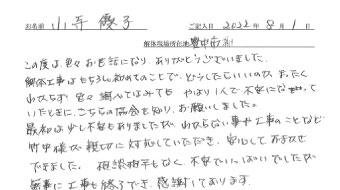 お名前 小寺優子 ご記入日 2022年8月1日
解体現場所在地 豊中市
この度は、色々お世話になり、ありがとうございました。
解体工事はもちろん初めてのことで、どうしたらいいのか、まったく
わからず 色々調べてはみても やはり1人で不安になって
いたときに、こちらの協会を知り、お願いしました。
最初は少し不安もありましたが、わからない事や工事のことなど
竹中様が親切に対応していただき、安心しておまかせ
できました。相談相手もなく、不安でいっぱいでしたが
無事に工事も終了でき、感謝しております。